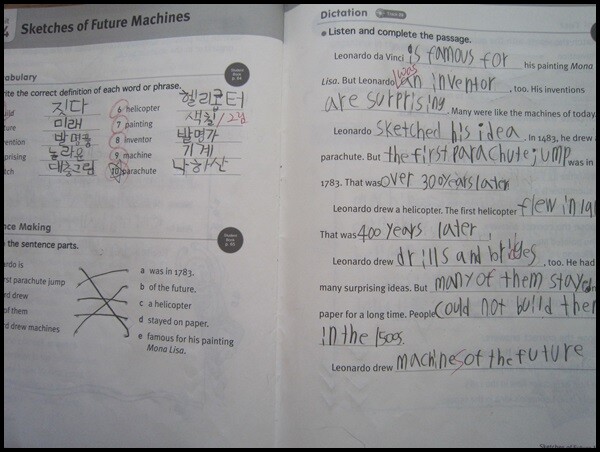 4 Sketches of Future Machines
abulary
rite the correct definition of each word or phrase.
ild 짓다
ture 미래
vention 발명품
prising 놀라운
tch 대충그림
6 helicopter 헬리콥터
7 painting 색칠/그림
8 inventor 발명가
9 machine 기계
10 parachute 낙하산
nce Making
the sentence parts.
ardo is
rst parachute jump
rd drew
of them
rd drew machines
a was in 1783.
b of the future.
c a helicopter
d stayed on paper.
e famous for his painting
Mona Lisa.
Dictation
Listen and complete the passage.
Leonardo da Vinci is famous for his painting Mona
Lisa. But Leonardo was an inventor, too. His inventions
are surprising. Many were like the machines of today
Leonardo sketched his idea. In 1483, he drew
parachute. But the first parachute jump was in
1783. That was over 300 years later
Leonardo drew a helicopter. The first helicopter flew in 19
That was 400 years later.
Leonardo drew drills and bridges, too. He had
many surprising ideas. But many of them stayed
paper for a long time. People could not build them
in the 1500s.
Leonardo drew machines of the future
Sketches of Future